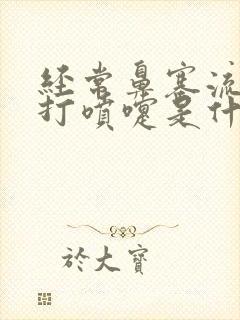 經常鼻塞流
打噴嚏是什
於大寶